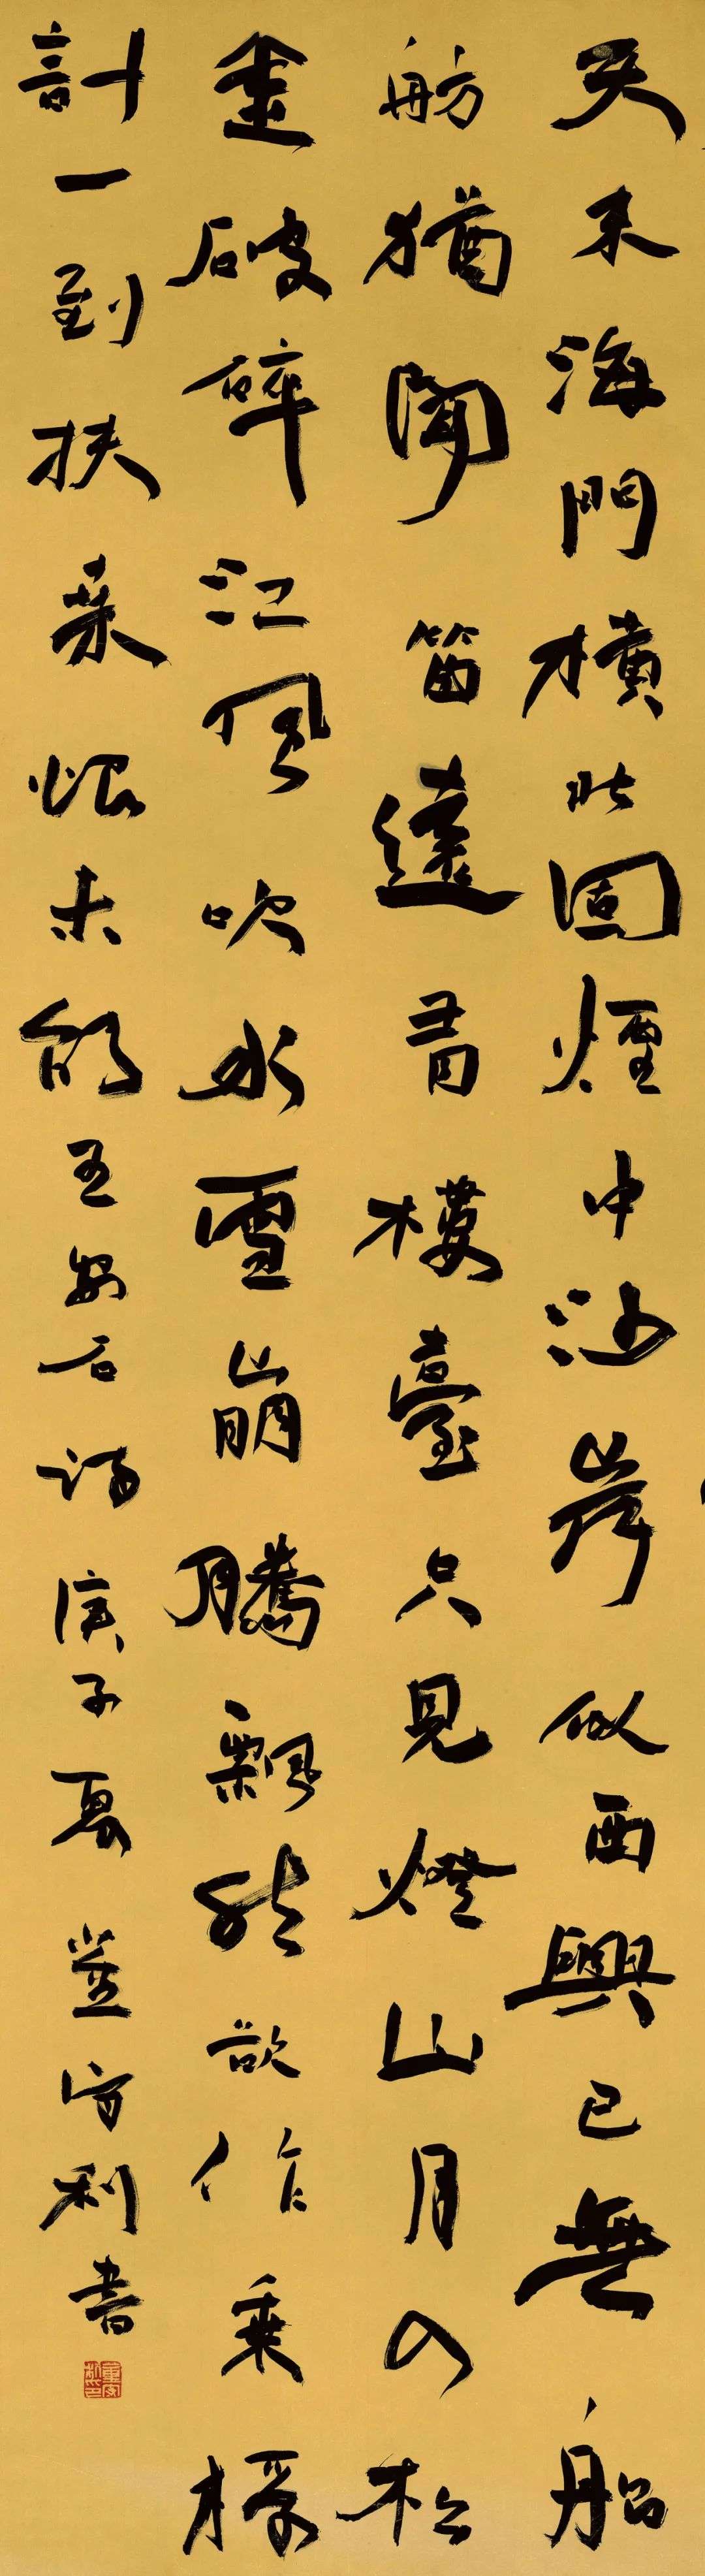 天末海門橫北固煙中沙岸似西興已無船
舫猶聞笛遠有樓臺只見燈山月入松
金破碎江風吹水雪崩騰飄然欲作乘桴
計一到扶桑恨未能王安石詩庚子夏利書